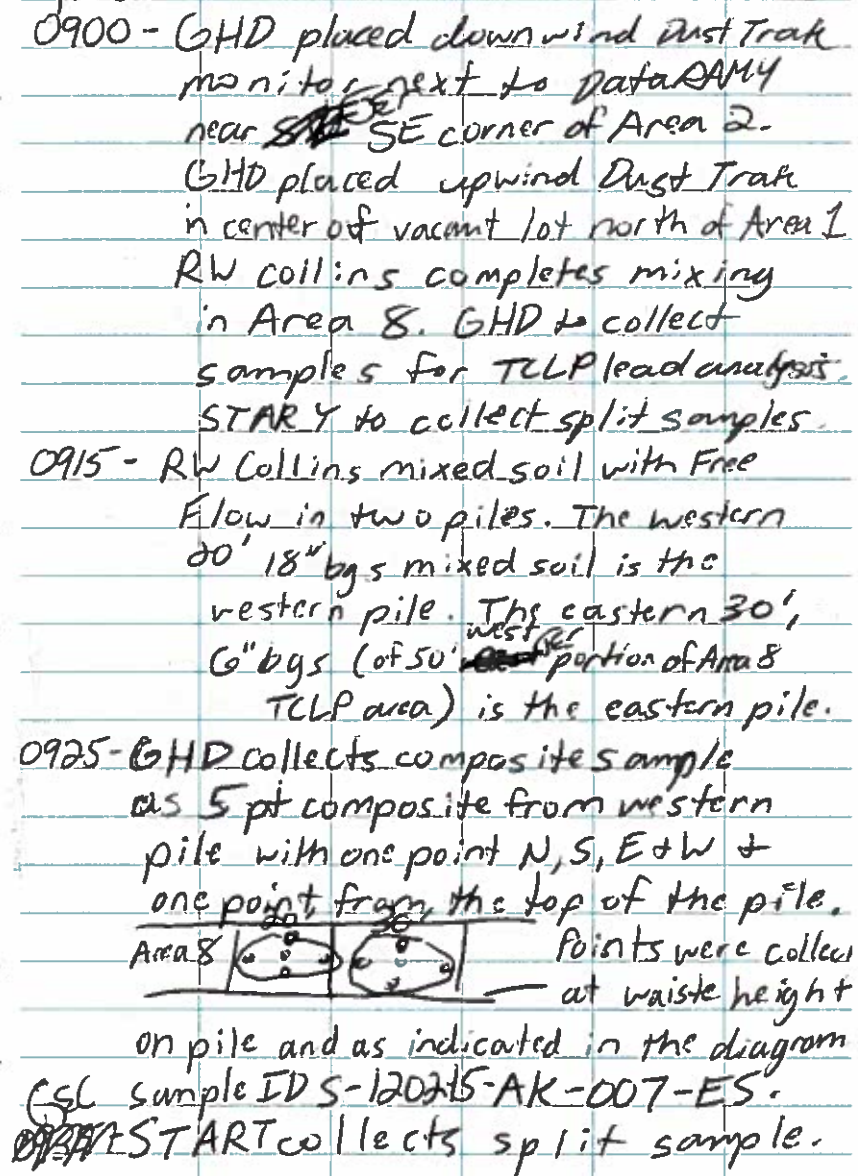 0900 - GHD placed downwind Dust Trak
monitor next to DataRAM4
near SE corner of Area 2.
GHD placed upwind Dust Trak
in center of vacant lot north of Area 1
RW Collins completes mixing
in Area 8. GHD to collect
samples for TCLP lead analysis.
STARY to collect split samples.
0915 - RW Collins mixed soil with Free
Flow in two piles. The western
20' 18" bgs mixed soil is the
western pile. The eastern 30',
6" bgs (of 50' west portion of Area 8
TCLP area) is the eastern pile.
0925 - GHD collects composite sample
as 5 pt composite from western
pile with one point N, S, E & W &
one point from the top of the pile.
20 30
Area 8 Points were collec
at waiste height
on pile and as indicated in the diagram
CSC sample ID S-120215-AK-007-ES.
START collects split sample.